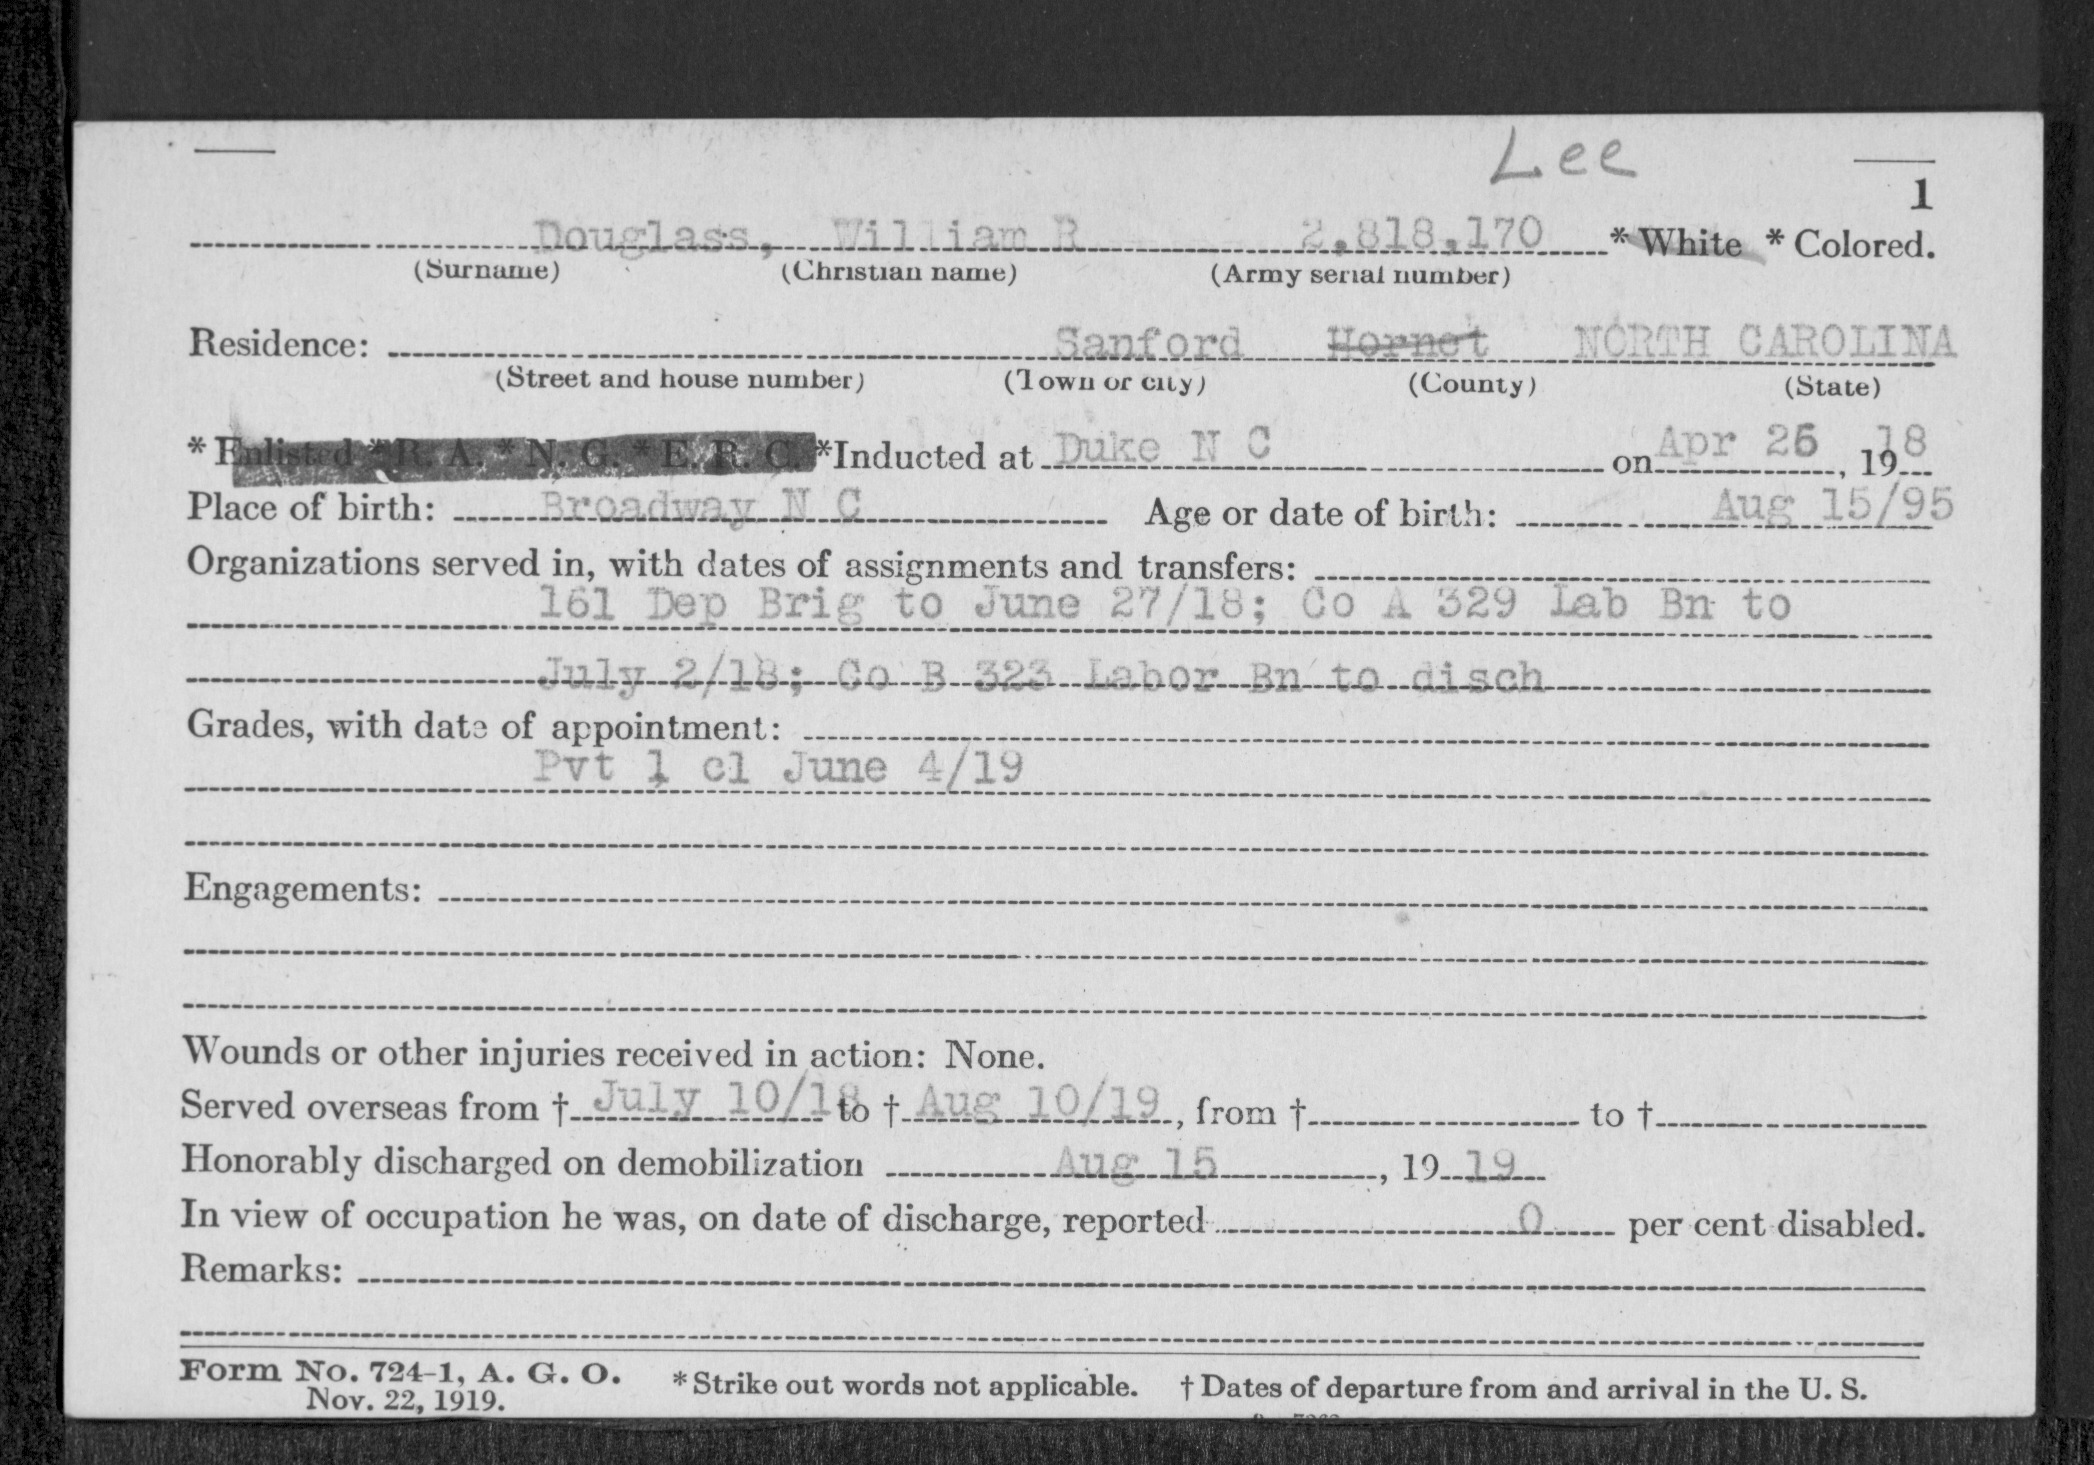 Lee
1
Douglass, William R 2,818,170 * White * Colored.
(Surname) (Christian name) (Army serial number)
Residence: Sanford Hornet NORTH CAROLINA
(Street and house number) (Town or city) (County) (State)
* Enlisted * R. A. * N. G. * E. R. C. *Inducted at Duke N C on Apr 26, 1918
Place of birth: Broadway N C Age or date of birth: Aug 15/95
Organizations served in, with dates of assignments and transfers:
161 Dep Brig to June 27/18; Co A 329 Lab Bn to
July 2/18; Co B 323 Labor Bn to disch
Grades, with date of appointment:
Pvt 1 cl June 4/19
Engagements:
Wounds or other injuries received in action: None.
Served overseas from † July 10/18 to † Aug 10/19, from † to †
Honorably discharged on demobilization Aug 15, 19 19
In view of occupation he was, on date of discharge, reported 0 per cent disabled.
Remarks:
Form No. 724-1, A. G. O. * Strike out words not applicable. † Dates of departure from and arrival in the U. S.
Nov. 22, 1919.